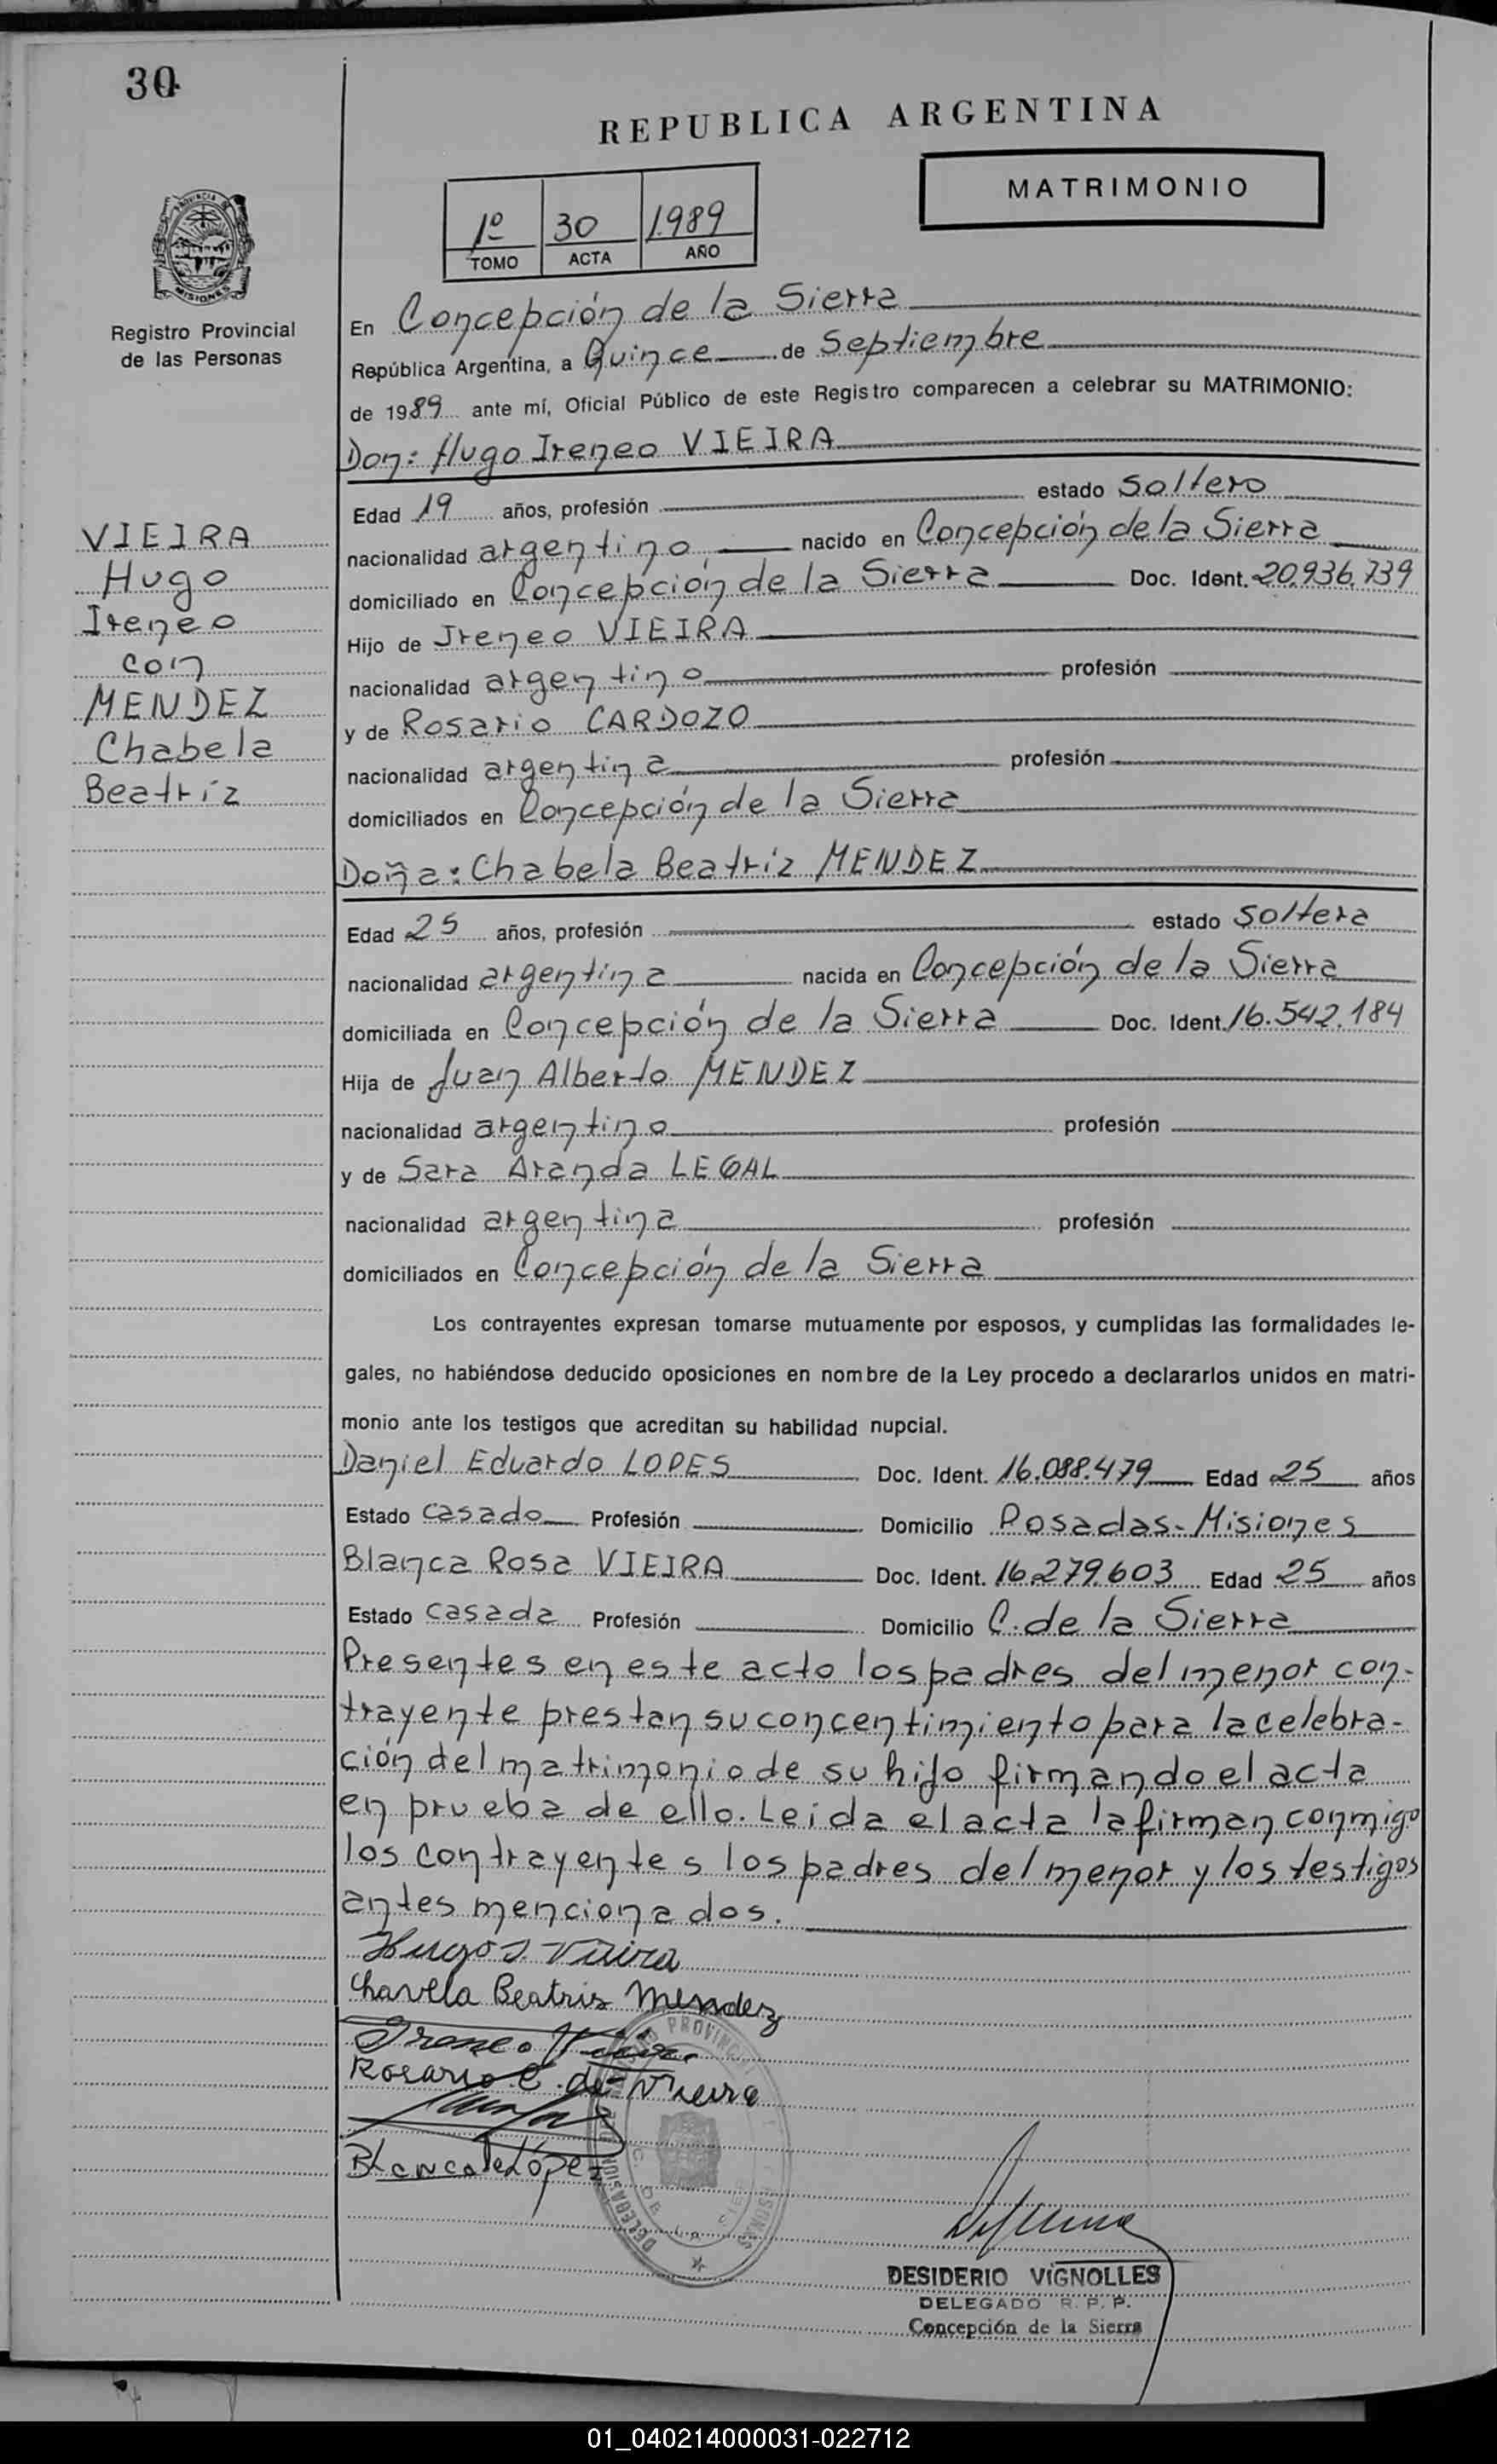 30
REPUBLICA ARGENTINA
MATRIMONIO
1º 30 1989
TOMO ACTA AÑO
PROVINCIA D
MISIONES
Registro Provincial
de las Personas
En Concepción de la Sierra
República Argentina, a Quince de Septiembre
de 1989 ante mí, Oficial Público de este Registro comparecen a celebrar su MATRIMONIO:
Don: Hugo Ireneo VIEIRA
Edad 19 años, profesión estado soltero
nacionalidad argentino nacido en Concepción de la Sierra
domiciliado en Concepción de la Sierra Doc. Ident. 20.936.739
Hijo de Ireneo VIEIRA
nacionalidad argentino profesión
y de Rosario CARDOZO
nacionalidad argentina profesión
domiciliados en Concepción de la Sierra
VIEIRA
Hugo
Ireneo
con
MENDEZ
Chabela
Beatríz
Doña: Chabela Beatríz MENDEZ
Edad 25 años, profesión estado soltera
nacionalidad argentina nacida en Concepción de la Sierra
domiciliada en Concepción de la Sierra Doc. Ident. 16.542.184
Hija de Juan Alberto MENDEZ
nacionalidad argentino profesión
y de Sara Aranda LEGAL
nacionalidad argentina profesión
domiciliados en Concepción de la Sierra
Los contrayentes expresan tomarse mutuamente por esposos, y cumplidas las formalidades le-
gales, no habiéndose deducido oposiciones en nombre de la Ley procedo a declararlos unidos en matri-
monio ante los testigos que acreditan su habilidad nupcial.
Daniel Eduardo LOPES Doc. Ident. 16.088.479 Edad 25 años
Estado casado Profesión Domicilio Posadas-Misiones
Blanca Rosa VIEIRA Doc. Ident. 16.279.603 Edad 25 años
Estado casada Profesión Domicilio C. de la Sierra
Presentes en este acto los padres del menor con-
trayente prestan su concentimiento para la celebra-
ción del matrimonio de su hijo firmando el acta
en prueba de ello. Leida el acta la firman conmigo
los contrayentes los padres del menor y los testigos
antes mencionados.
Hugo I. Vieira
Chavela Beatris Mendez
Ireneo Vieira
Rosario C. de Vieira
Blanca de López
DESIDERIO VIGNOLLES
DELEGADO R. P. P.
Concepción de la Sierra
01_040214000031-022712